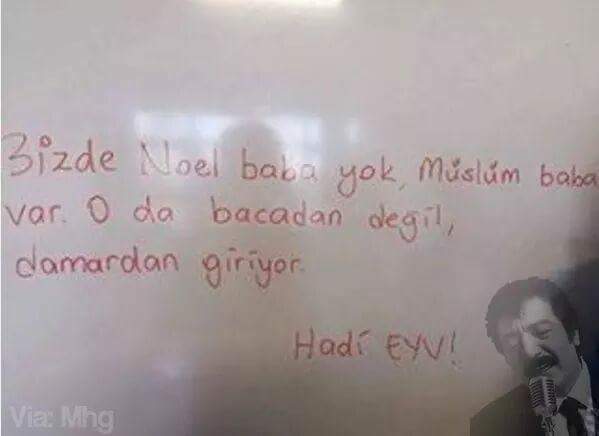 Bizde Noel baba yok, Müslüm baba
var. O da bacadan değil,
damardan giriyor.
Hadi EYV!
Via: Mhg